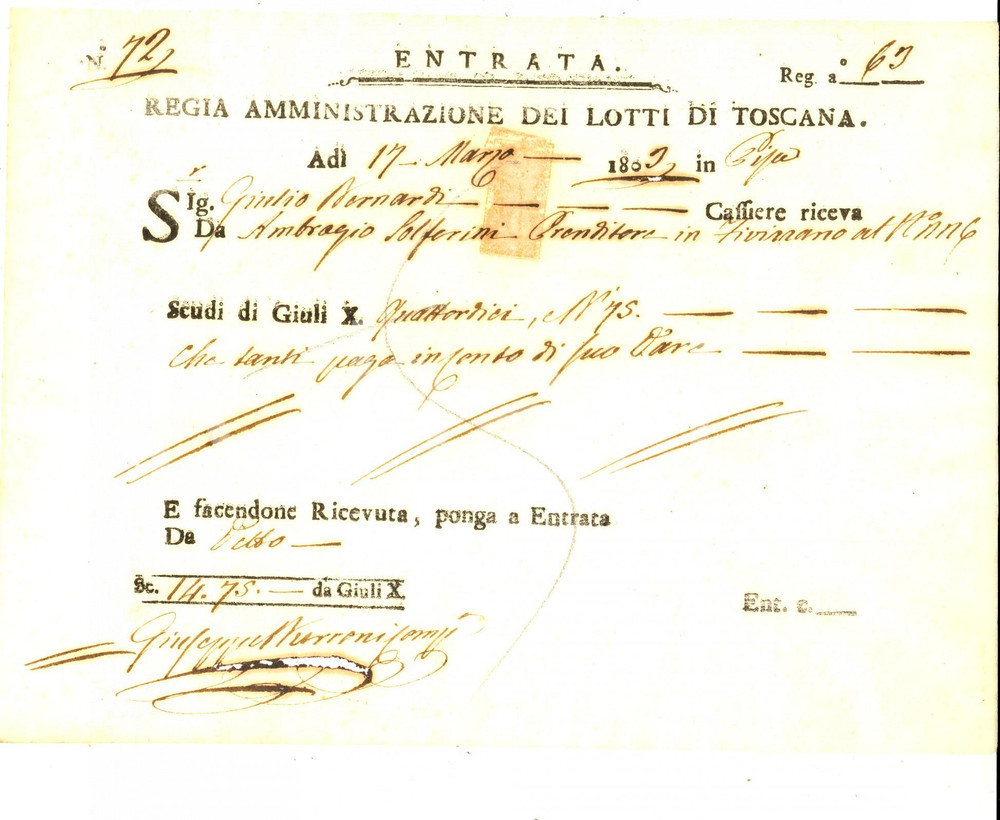 N.° 72
ENTRATA.
Reg. a° 63
REGIA AMMINISTRAZIONE DEI LOTTI DI TOSCANA.
Adì 17 Marzo 1803 in Pisa
SIg. Giulio Bernardi Caſſiere riceva
Da Ambrogio Solferini Prenditore in Fivizzano al N°
Scudi di Giuli X. Quattordici, e N.i 75.
Che tanti paga in conto di suo Dare
E facendone Ricevuta, ponga a Entrata
Da Detto
Sc. 14. 75. da Giuli X.
Ent. c.
Giuseppe